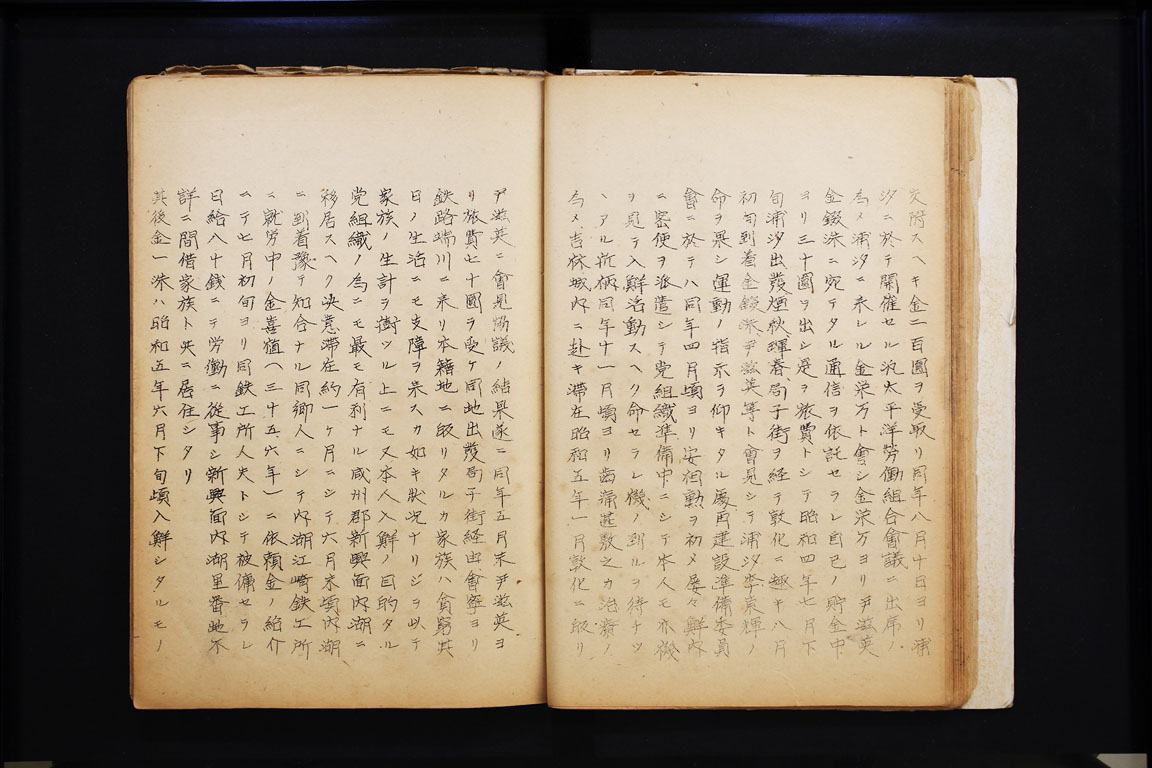 交附スヘキ金二百圓ヲ受取リ同年八月十日ヨリ浦
汐ニ於テ開催セル汎太平洋労働組合會議ニ出席ノ
為メ浦汐ニ来レル金栄万ト會シ金栄万ヨリ尹滋英
金錣洙ニ宛テタル通信ヲ依託セラレ自己ノ貯金中
ヨリ三十圓ヲ出シ是ヲ旅費トシテ昭和四年七月下
旬浦汐出發煙秋琿春局子街ヲ経テ敦化ニ趣キ八月
初旬到着金錣洙尹滋英等ト會見シテ浦汐李東輝ノ
命ヲ果シ運動ノ指示ヲ仰キタル處再建設準備委員
會ニ於テハ同年四月頃ヨリ安相勲ヲ初メ屡々鮮内
ニ密使ヲ派遣シテ党組織準備中ニシテ本人モ亦機
ヲ見テ入鮮活動スヘク命セラレ機ノ到ルヲ待チツ
ヽアル折柄同年十一月頃ヨリ歯痛甚敷之カ治療ノ
為メ吉林城内ニ赴キ滞在昭和五年一月敦化ニ皈リ
尹滋英ニ會見協議ノ結果遂ニ同年五月末尹滋英ヨ
リ旅費七十圓ヲ受ケ同地出發局子街経由會寧ヨリ
鉄路端川ニ来リ本籍地ニ皈リタルカ家族ハ貧窮其
日ノ生活ニモ支障ヲ呆スカ如キ狀況ナリシヲ以テ
家族ノ生計ヲ樹ツル上ニモ又本人入鮮ノ目的タル
党組織ノ為ニモ最モ有利ナル咸州郡新興面内湖ニ
移居スヘク決意滞在約一ヶ月ニシテ六月末頃内湖
ニ到着豫テ知合ナル同郷人ニシテ内湖江崎鉄工所
ニ就労中ノ金喜植(三十五六年)ニ依頼金ノ紹介
ニテ七月初旬ヨリ同鉄工所人夫トシテ被傭セラレ
日給八十錢ニテ労働ニ從事シ新興面内湖里番地不
詳ニ間借家族ト共ニ居住シタリ
其後金一洙ハ昭和五年六月下旬頃入鮮シタルモノ